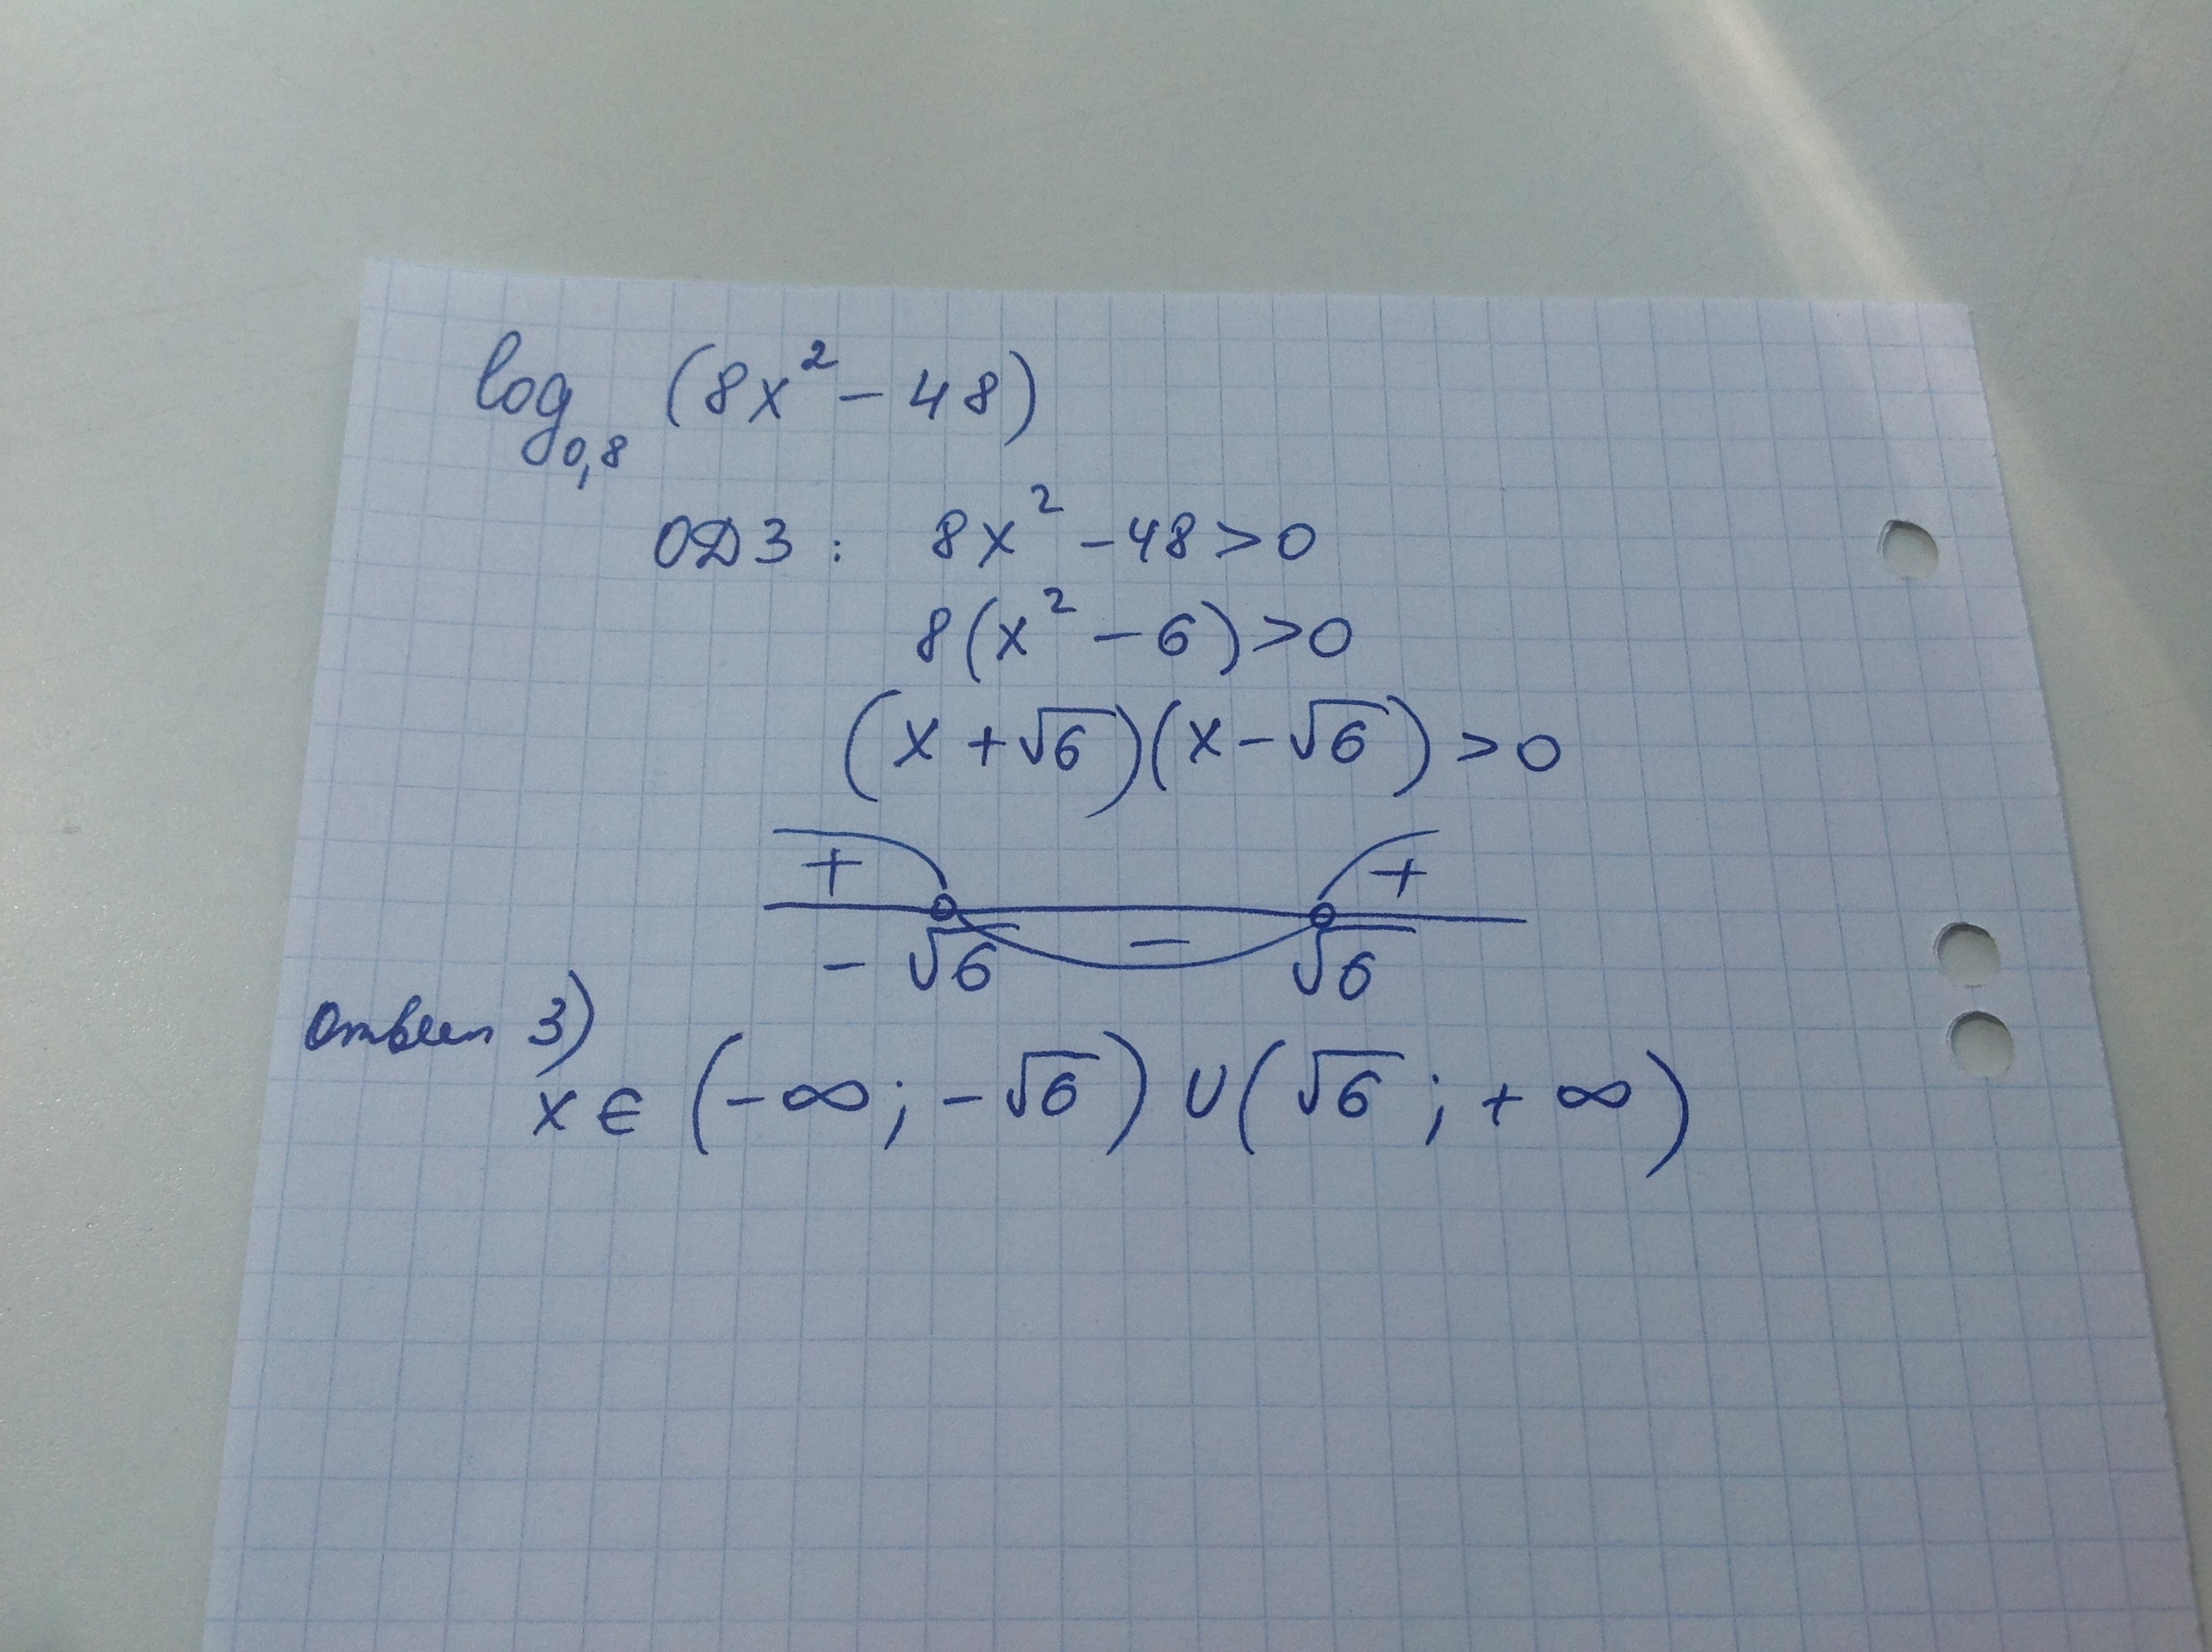 log₀,₈ (8x² - 48)
ОДЗ: 8x² - 48 > 0
8(x² - 6) > 0
(x + √6)(x - √6) > 0
+ - +
-√6 √6
Ответ 3)
x ∈ (-∞; -√6) ∪ (√6; +∞)